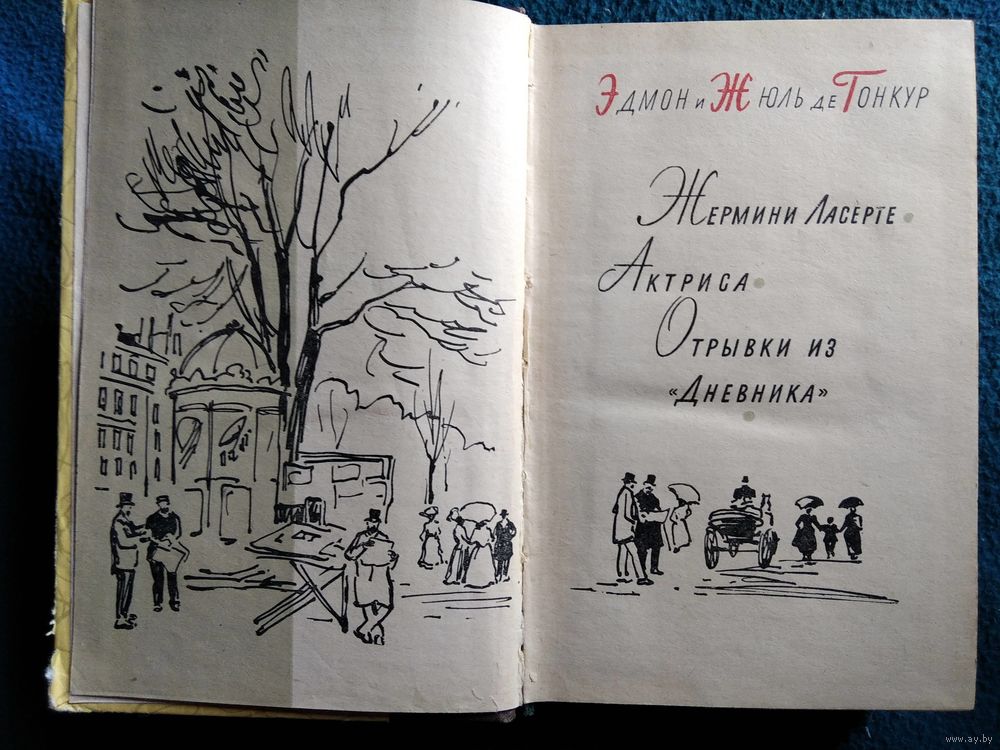 Эдмон и Жюль де Гонкур
Жермини Ласерте
Актриса
Отрывки из
«Дневника»
www.ay.by